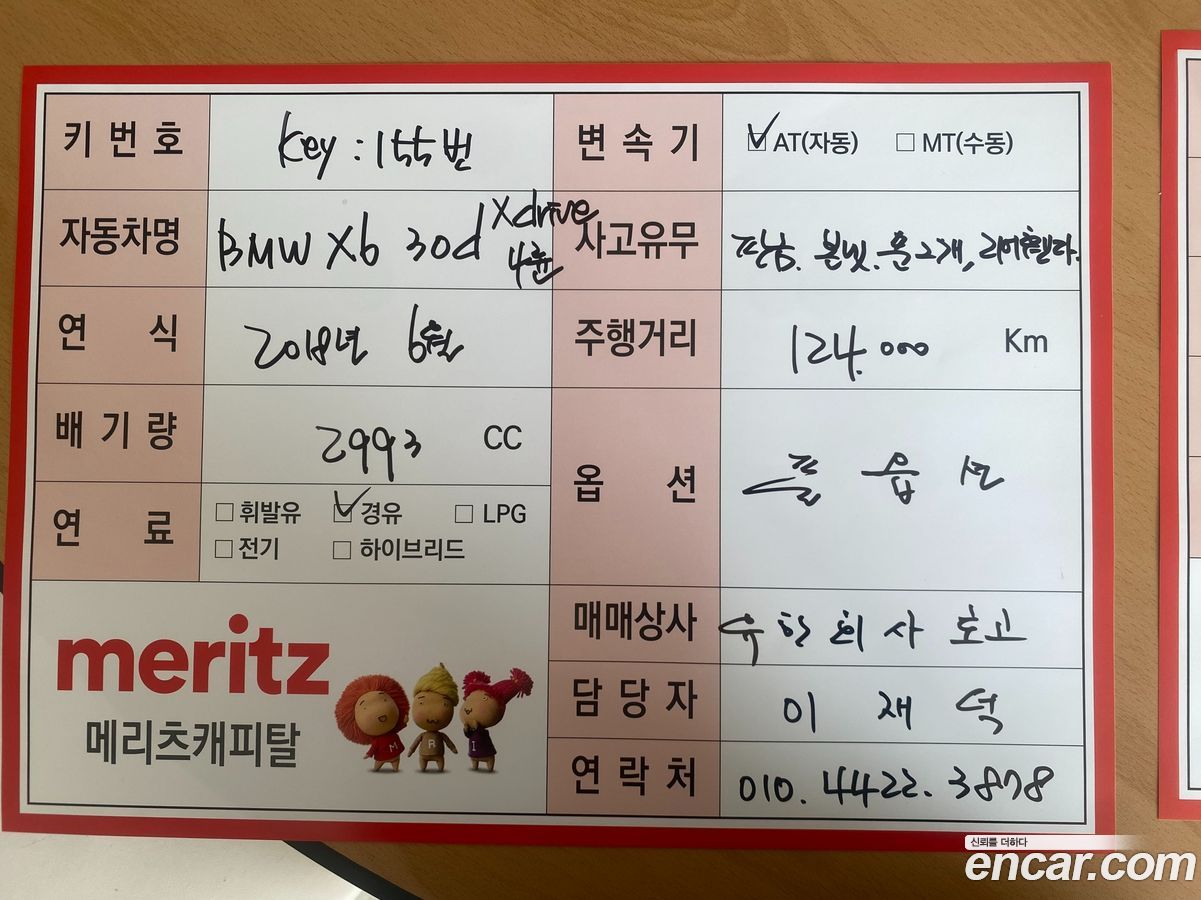 키 번 호 Key : 155번
변 속 기 ☑ AT(자동) □ MT(수동)
자동차명 BMW X6 30d Xdrive 4륜
사고유무 판남. 본넷. 문2개, 리어휀다.
연 식 2018년 6월
주행거리 124.000 Km
배 기 량 2993 CC
옵 션 풀 옵 션
연 료 □ 휘발유 ☑ 경유 □ LPG
□ 전기 □ 하이브리드
매매상사 유한회사 호고
담 당 자 이 재 덕
연 락 처 010. 4422. 3878
meritz
메리츠캐피탈
M R I
신뢰를 더하다
encar.com